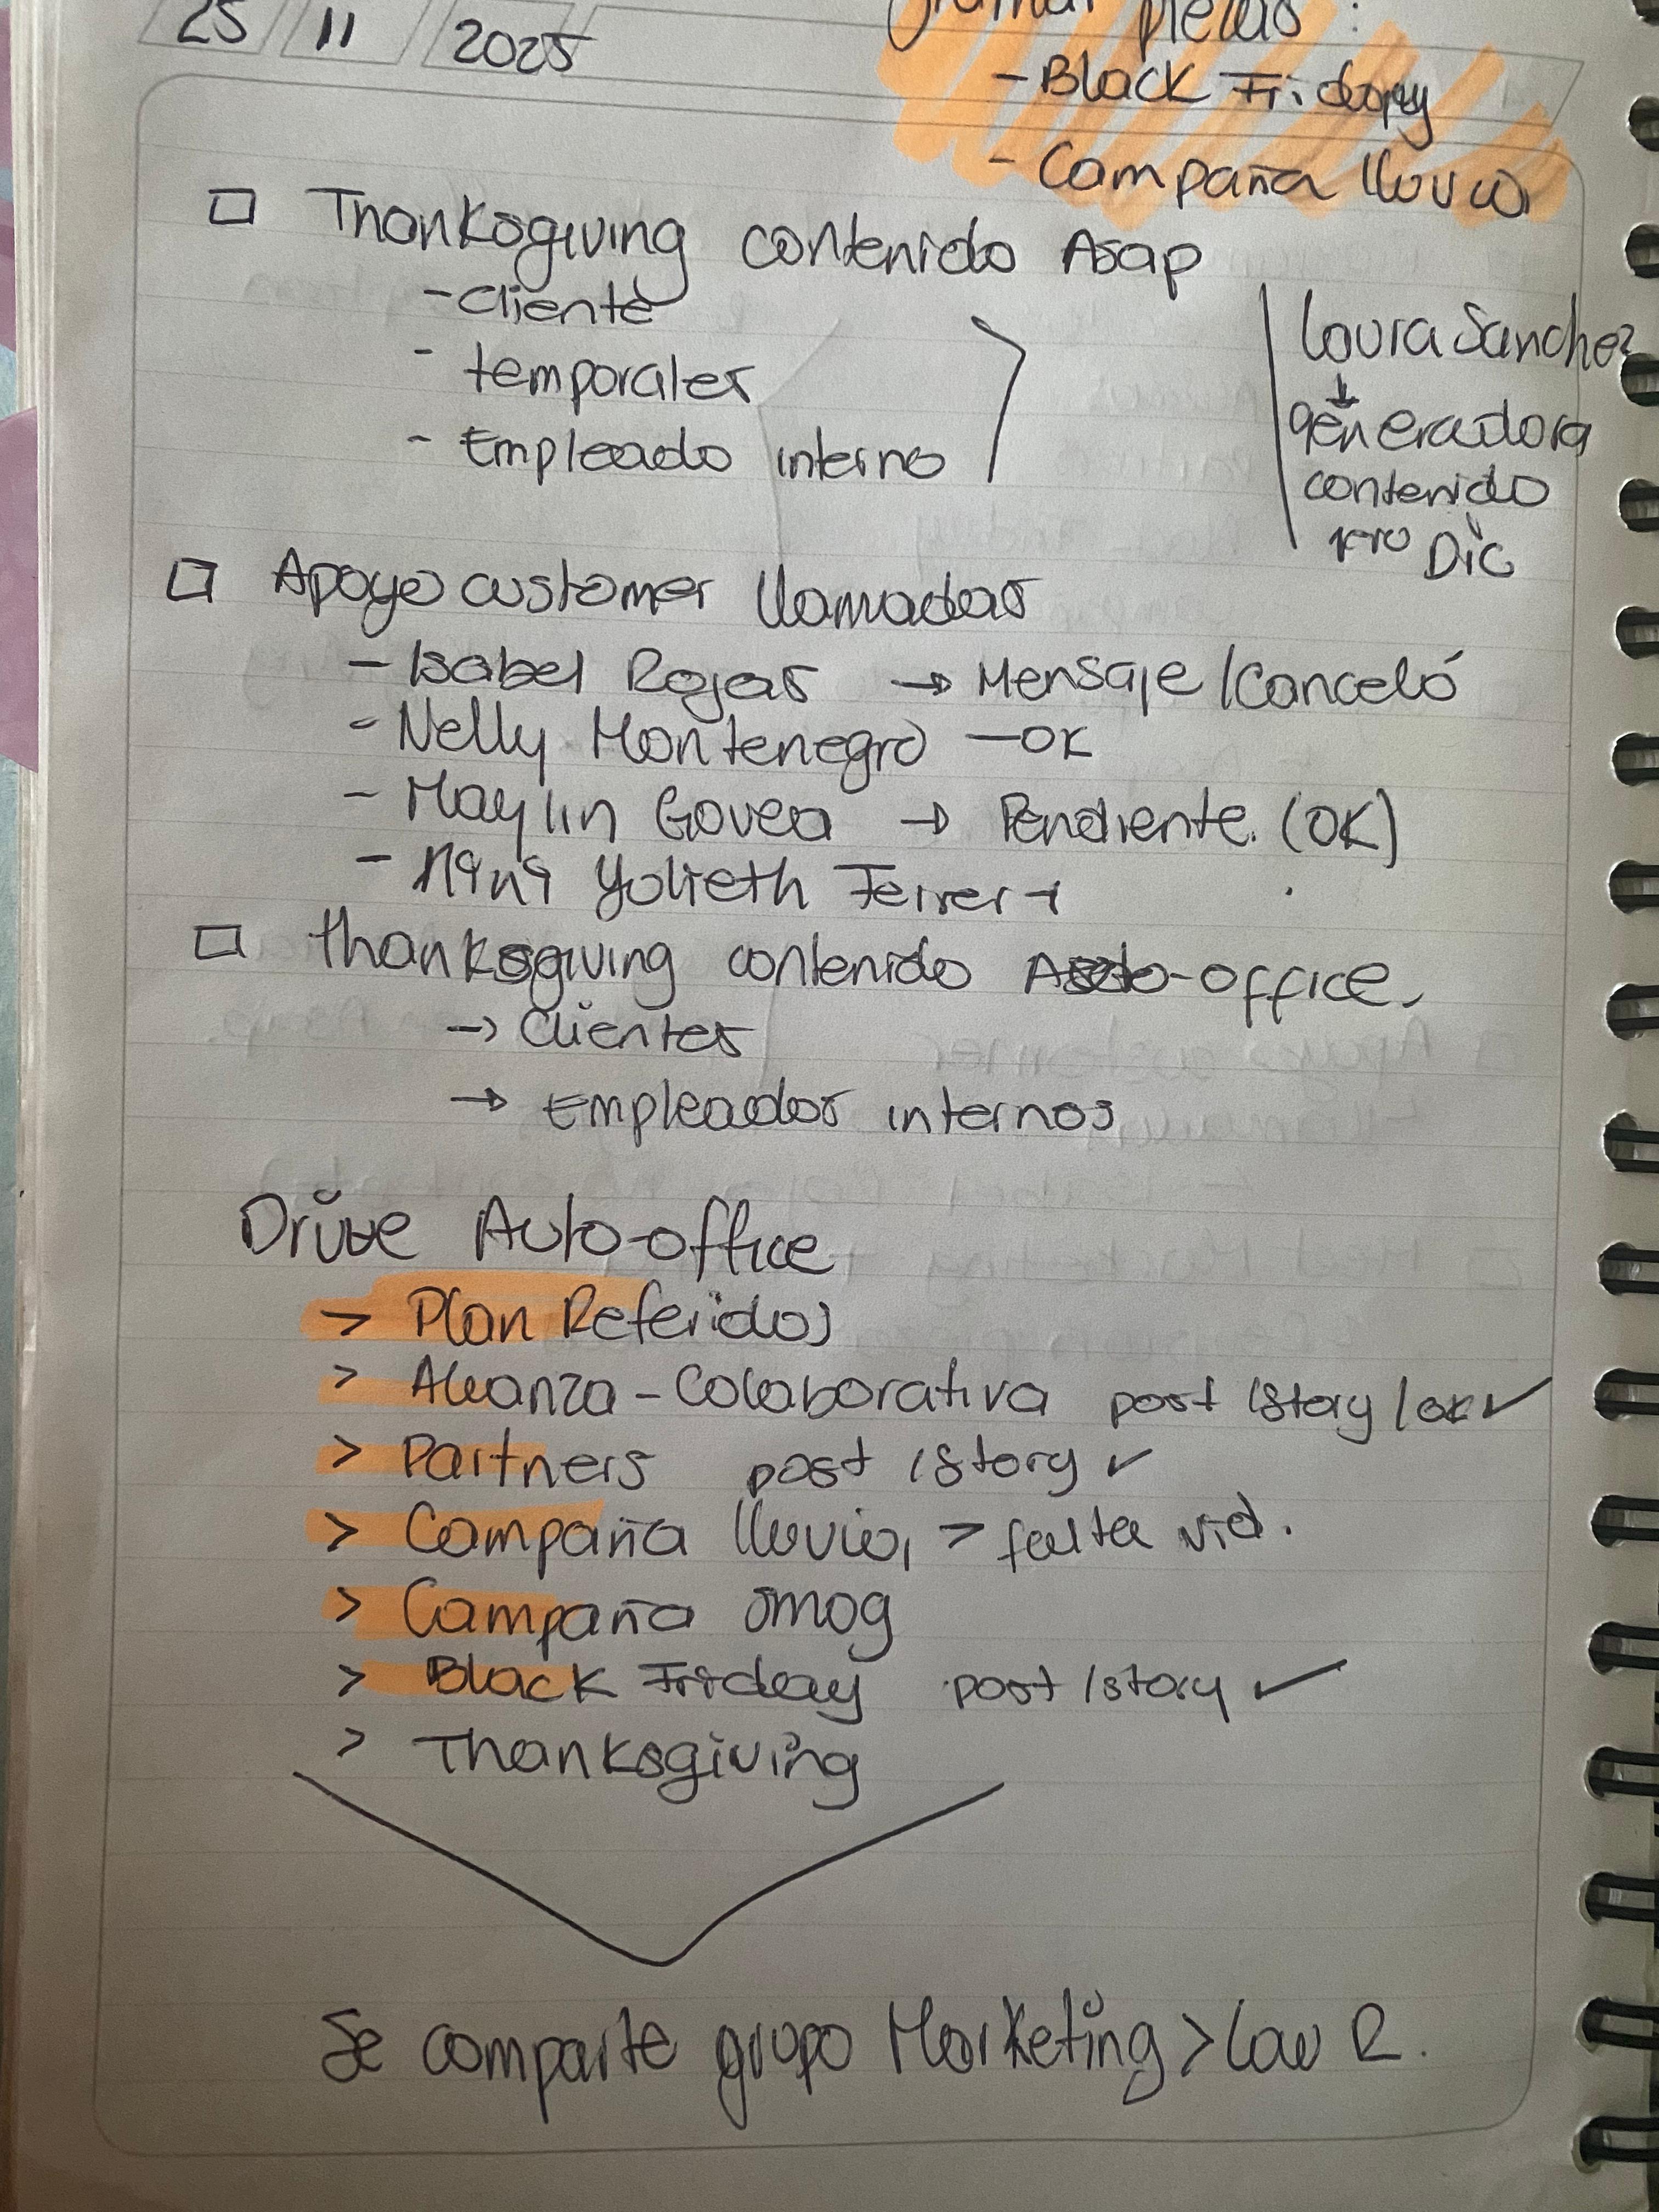 25 11 2025
piezas :
- Black Friday
- Campaña lluvia
Thanksgiving contenido Asap
- Cliente
- temporales
- Empleado interno
Laura Sanchez
generadora
contenido
1ero Dic
Apoyo customer llamadas
- Isabel Rojas → Mensaje / Canceló
- Nelly Montenegro - OK
- Maylin Govea → Pendiente. (OK)
- Yulieth Ferrer
thanksgiving contenido Auto-office.
→ Clientes
→ Empleados internos
Drive Auto-office
> Plan Referidos
> Alianza - Colaborativa post / story / ok ✓
> Partners post / story ✓
> Campaña lluvia, > falta vid.
> Campaña smog
> Black Friday post / story ✓
> Thanksgiving
Se comparte grupo Marketing > Law R.